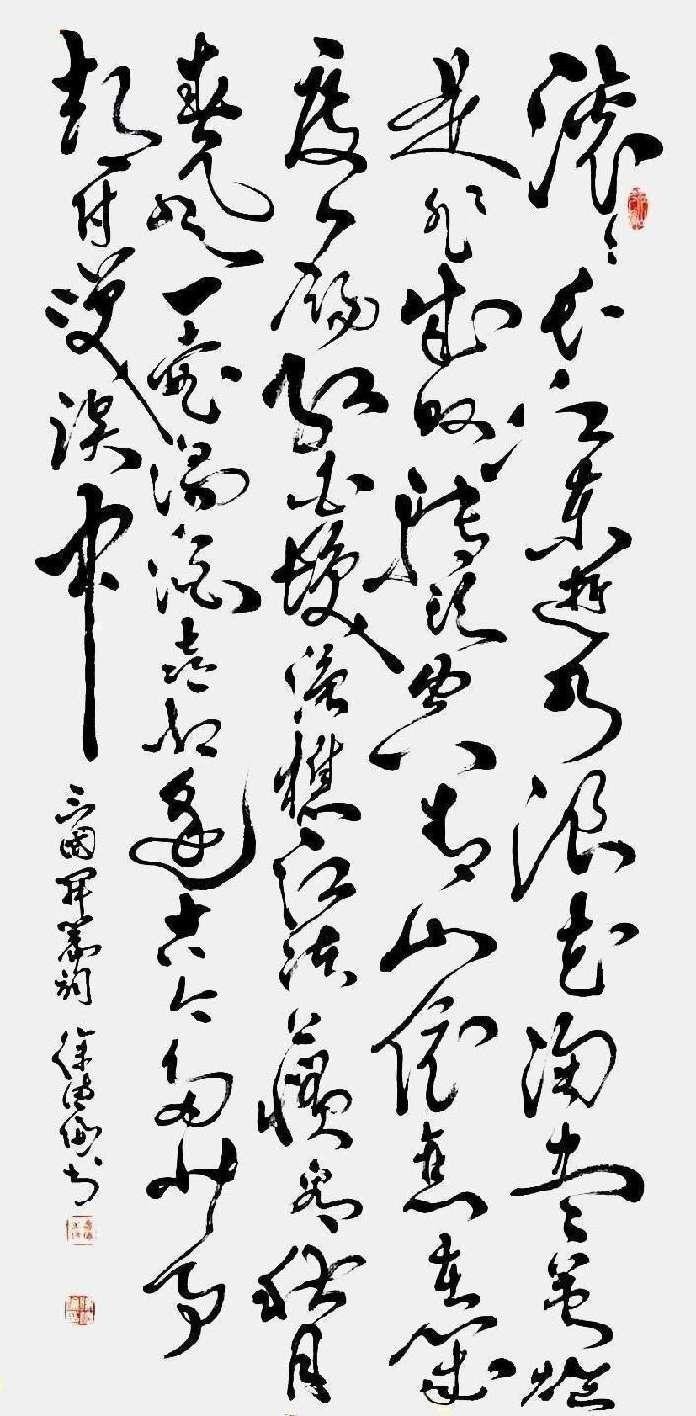 滚滚长江东逝水浪花淘尽英雄
是非成败转头空青山依旧在几
度夕阳红白发渔樵江渚上惯看秋月
春风一壶浊酒喜相逢古今多少事
都付笑谈中
三國开篇词 徐书